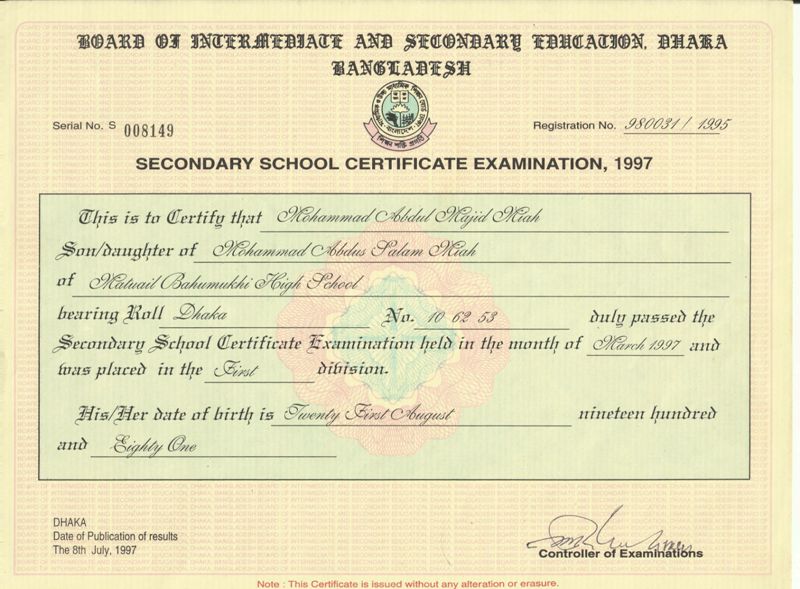 BOARD OF INTERMEDIATE AND SECONDARY EDUCATION, DHAKA
BANGLADESH
Serial No. S 008149
Registration No. 980031 / 1995
SECONDARY SCHOOL CERTIFICATE EXAMINATION, 1997
This is to Certify that Mohammad Abdul Majid Miah
Son/daughter of Mohammad Abdus Salam Miah
of Matuail Bahumukhi High School
bearing Roll Dhaka No. 10 62 53 duly passed the
Secondary School Certificate Examination held in the month of March 1997 and
was placed in the First division.
His/Her date of birth is Twenty First August nineteen hundred
and Eighty One
DHAKA
Date of Publication of results
The 8th July, 1997
Controller of Examinations
Note : This Certificate is issued without any alteration or erasure.